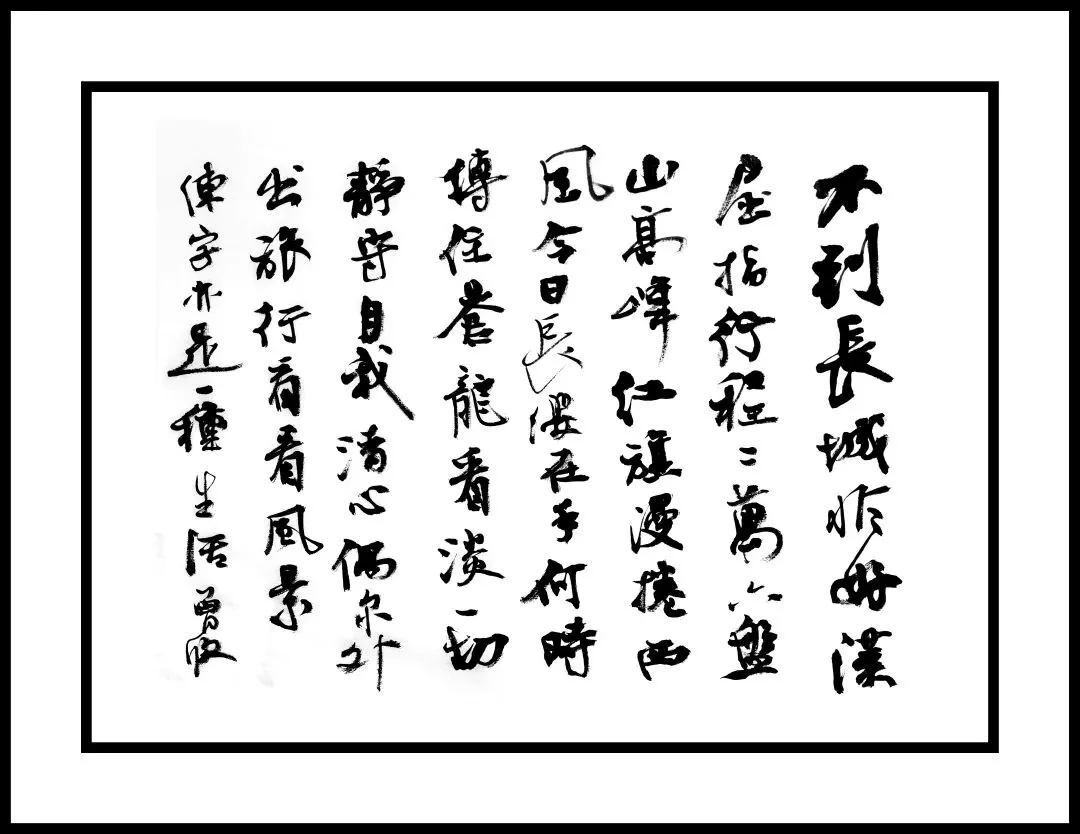 不到長城非好漢
屈指行程二萬六盤
山高峰紅旗漫捲西
風今日長纓在手何時
縛住蒼龍看淡一切
靜守自我清心偶尔外
出旅行看看風景
練字亦是一種生活